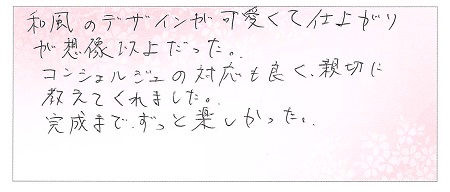 和風のデザインが可愛くて仕上がり
が想像以上だった。
コンシェルジュの対応も良く、親切に
教えてくれました。
完成まで、ずっと楽しかった。